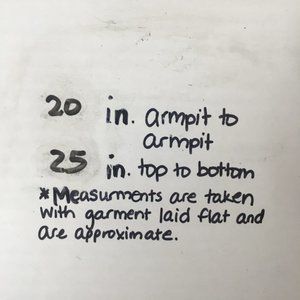 20 in. armpit to
armpit
25 in. top to bottom
*Measurments are taken
with garment laid flat and
are approximate.